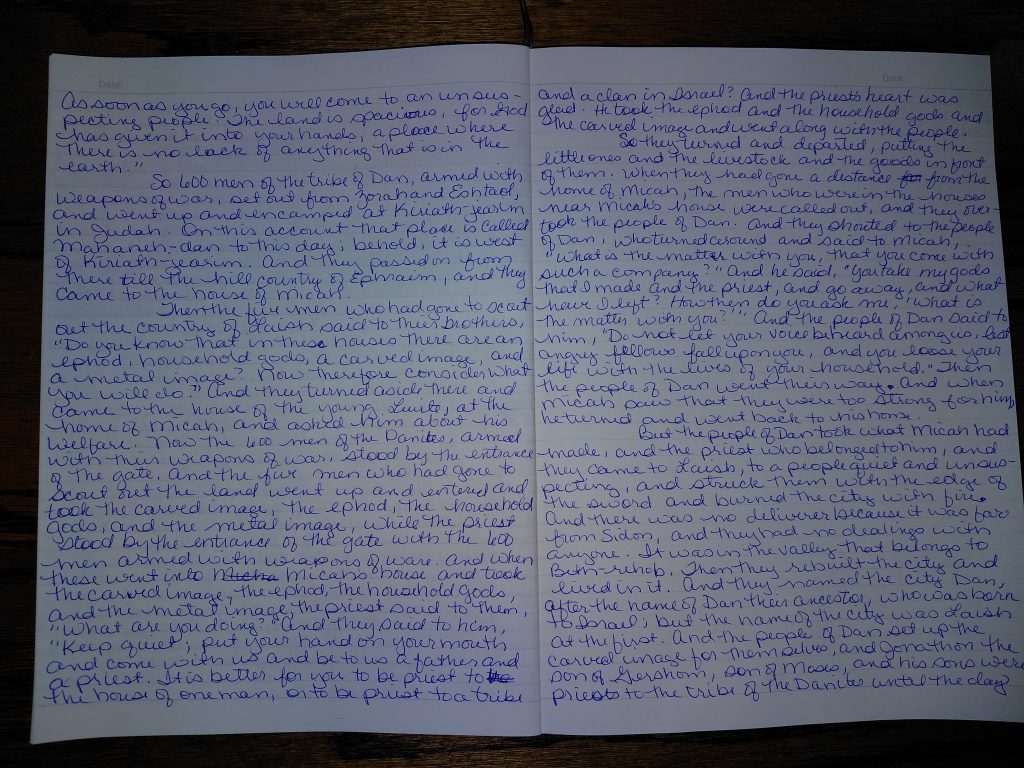 Date:
As soon as you go, you will come to an unsus-
pecting people. The land is spacious, for God
has given it into your hands, a place where
there is no lack of anything that is in the
earth."
So 600 men of the tribe of Dan, armed with
weapons of war, set out from Zorah and Eshtaol,
and went up and encamped at Kiriath-jearim
in Judah. On this account that place is called
Mahaneh-dan to this day; behold, it is west
of Kiriath-jearim. And they passed on from
there till the hill country of Ephraim, and they
came to the house of Micah.
Then the five men who had gone to scout
out the country of Laish said to their brothers,
"Do you know that in these houses there are an
ephod, household gods, a carved image, and
a metal image? Now therefore consider what
you will do." And they turned aside there and
came to the house of the young Levite, at the
home of Micah, and asked him about his
welfare. Now the 600 men of the Danites, armed
with their weapons of war, stood by the entrance
of the gate. And the five men who had gone to
scout out the land went up and entered and
took the carved image, the ephod, the household
gods, and the metal image, while the priest
stood by the entrance of the gate with the 600
men armed with weapons of ware. and when
these went into Micha Micah's house and took
the carved image, the ephod, the household gods,
and the metal image, the priest said to them,
"What are you doing?" And they said to him,
"Keep quiet; put your hand on your mouth
and come with us and be to us a father and
a priest. It is better for you to be priest to the
the house of one man, or to be priest to a tribe
Date:
and a clan in Israel? And the priest's heart was
glad. He took the ephod and the household gods and
the carved image and went along with the people.
So they turned and departed, putting the
little ones and the livestock and the goods in front
of them. When they had gone a distance from the
home of Micah, the men who were in the houses
near Micah's house were called out, and they over-
took the people of Dan. And they shouted to the people
of Dan, who turned around and said to Micah,
"What is the matter with you, that you come with
such a company?" And he said, "You take my gods
that I made and the priest, and go away, and what
have I left? How then do you ask me, 'What is
the matter with you?'" And the people of Dan said to
him, "Do not let your voice be heard among us, lest
angry fellows fall upon you, and you loose your
life with the lives of your household." Then
the people of Dan went their way. And when
Micah saw that they were too strong for him,
he turned and went back to his home.
But the people of Dan took what Micah had
made, and the priest who belonged to him, and
they came to Laish, to a people quiet and unsus-
pecting, and struck them with the edge of
the sword and burned the city with fire.
And there was no deliverer because it was far
from Sidon, and they had no dealings with
anyone. It was in the valley that belongs to
Beth-rehob. Then they rebuilt the city and
lived in it. And they named the city Dan,
after the name of Dan their ancestor, who was born
to Israel; but the name of the city was Laish
at the first. And the people of Dan set up the
carved image for themselves, and Jonathon the
son of Gershom, son of Moses, and his sons were
priests to the tribe of the Danites until the day